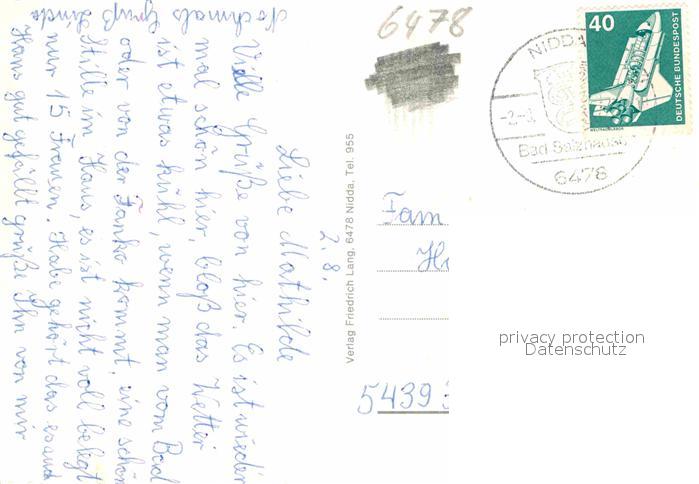 2. 8.
Liebe Mathilde
Viele Grüße von hier. Es ist wieder
mal schön hier, bloß das Wetter
ist etwas kühl, wenn man vom Bad
oder von der kommt, eine schön
Stille im Haus, es ist nicht voll belegt
nur 15 Frauen. Habe gehört das es auch
Hans gut gefällt grüße Ihn von mir
Nochmals Gruß Linda
Verlag Friedrich Lang, 6478 Nidda, Tel. 955
6478
NIDDA
-2.-8.
Bad Salzhausen
6478
40
DEUTSCHE BUNDESPOST
WELTRAUMLABOR
Fam
5439
privacy protection
Datenschutz